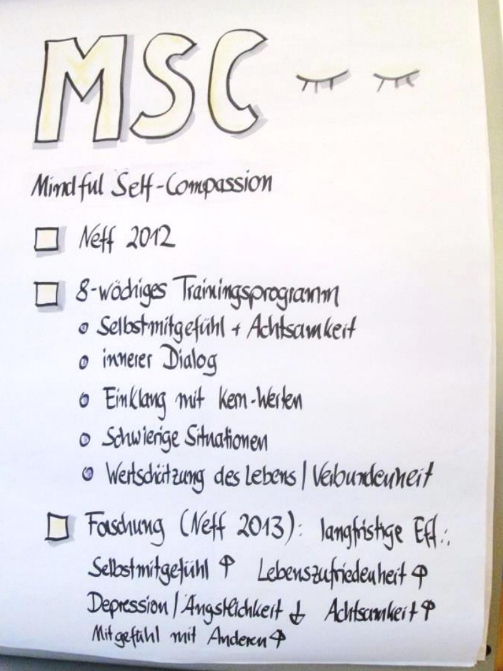 MSC
Mindful Self-Compassion
Neff 2012
8-wöchiges Trainingsprogramm
Selbstmitgefühl + Achtsamkeit
innerer Dialog
Einklang mit Kern-Werten
Schwierige Situationen
Wertschätzung des Lebens | Verbundenheit
Forschung (Neff 2013): langfristige Eff.:
Selbstmitgefühl ↑ Lebenszufriedenheit ↑
Depression | Ängstlichkeit ↓ Achtsamkeit ↑
Mitgefühl mit Anderen ↑